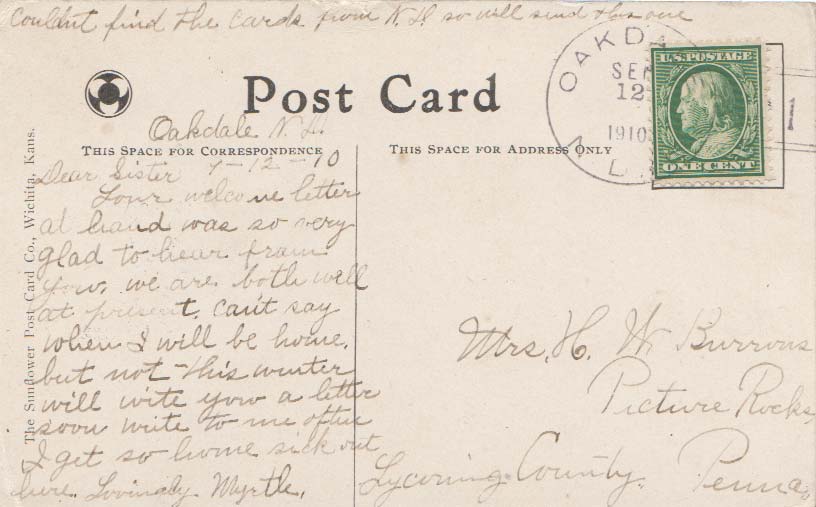 Couldn't find the cards from N. D. so will send this one
Post Card
THIS SPACE FOR CORRESPONDENCE
THIS SPACE FOR ADDRESS ONLY
The Sunflower Post Card Co., Wichita, Kans.
OAKDA
SEP
12
1910
U.S. POSTAGE
ONE CENT
Oakdale N. D.
9-12-10
Dear Sister
Your welcome letter
at hand was so very
glad to hear from
you, we are both well
at present, can't say
when I will be home.
but not this winter
will write yow a letter
soon write to me often
I get so home sick out
here. Lovingly Myrtle,
Mrs. H. W. Burrows
Picture Rocks,
Lycoming County.
Penna.